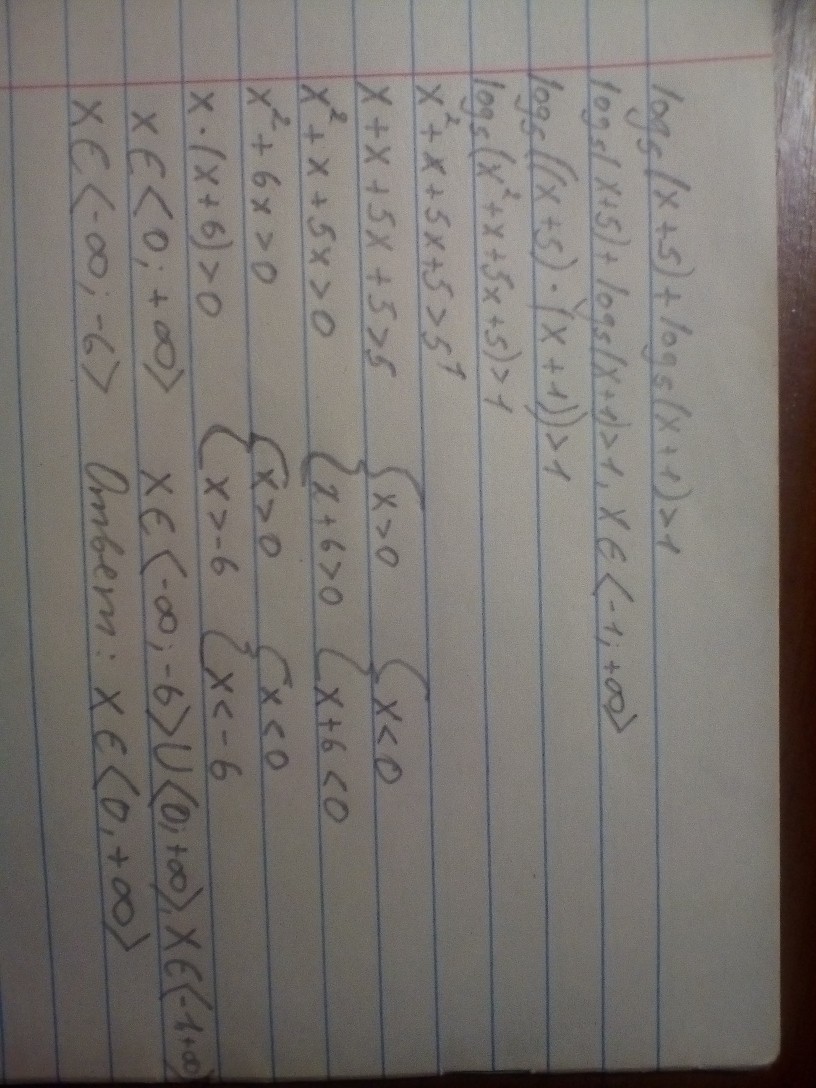 log₅(x+5)+log₅(x+1)>1
log₅(x+5)+log₅(x+1)>1, x∈<-1;+∞>
log₅((x+5)·(x+1))>1
log₅(x²+x+5x+5)>1
x²+x+5x+5>5¹
x+x+5x+5>5 {x>0 {x<0
x²+x+5x>0 {x+6>0 {x+6<0
x²+6x>0 {x>0 {x<0
x·(x+6)>0 {x>-6 {x<-6
x∈<0;+∞> x∈<-∞;-6>∪<0;+∞>, x∈<-1;+∞>
x∈<-∞;-6> Ответ: x∈<0,+∞>